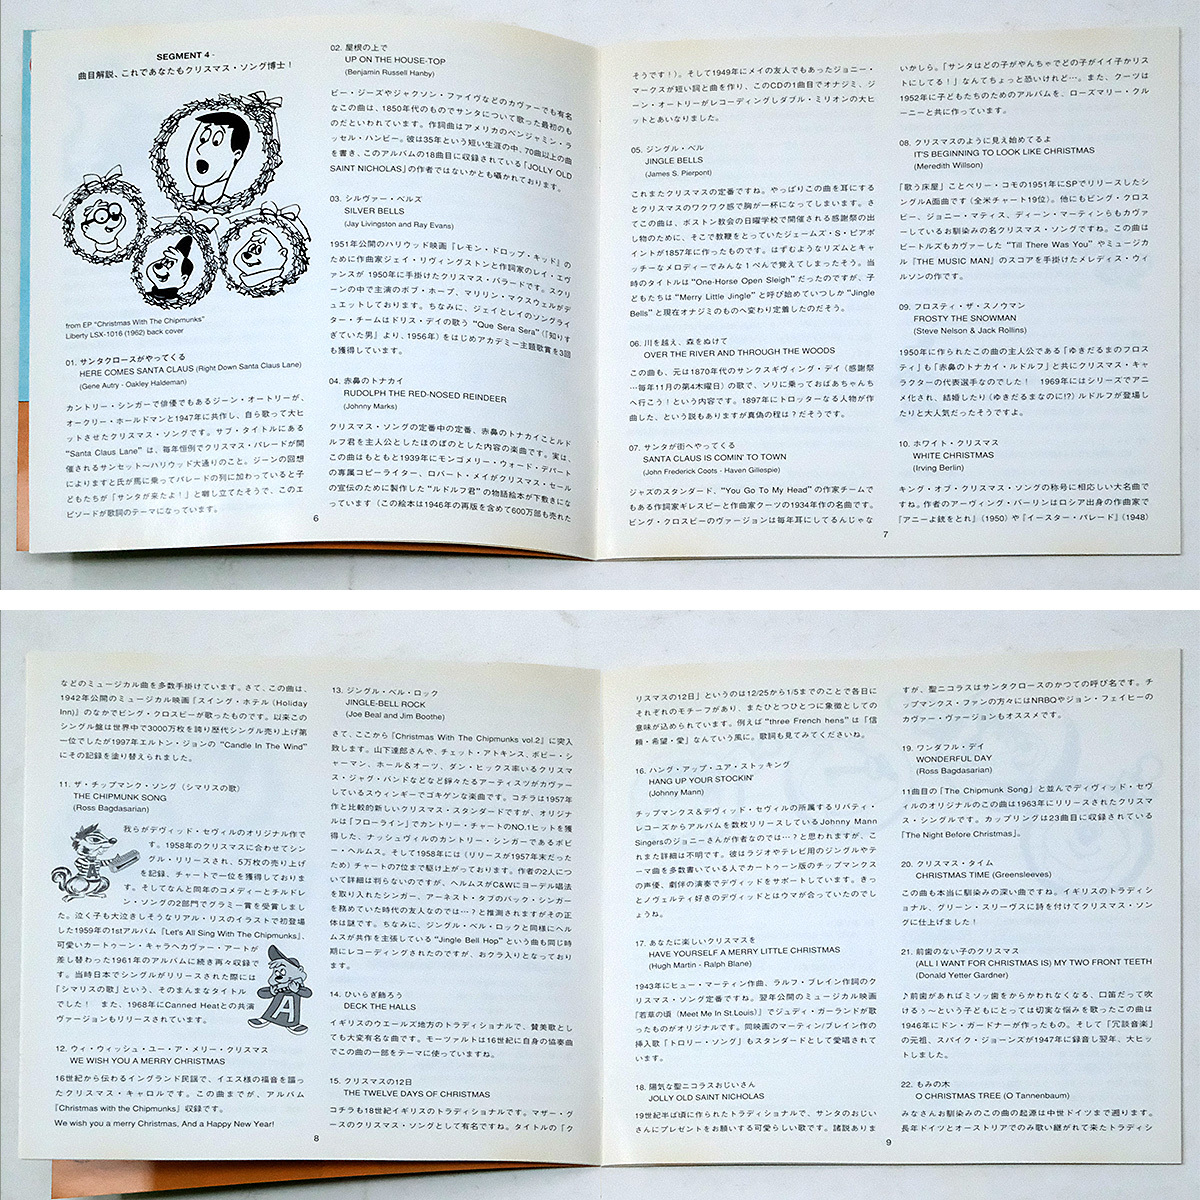 SEGMENT 4 -
曲目解説、これであなたもクリスマス・ソング博士！
from EP "Christmas With The Chipmunks"
Liberty LSX-1016 (1962) back cover
01. サンタクロースがやってくる
HERE COMES SANTA CLAUS (Right Down Santa Claus Lane)
(Gene Autry - Oakley Haldeman)
カントリー・シンガーで俳優でもあるジーン・オートリーが、
オークリー・ホールドマンと1947年に共作し、自ら歌って大ヒ
ットさせたクリスマス・ソングです。サブ・タイトルにある
"Santa Claus Lane" は、毎年恒例でクリスマス・パレードが開
催されるサンセット〜ハリウッド大通りのこと。ジーンの回想
によりますと氏が馬に乗ってパレードの列に加わっていると子
どもたちが「サンタが来たよ！」と囃し立てたそうで、このエ
ピソードが歌詞のテーマになっています。
02. 屋根の上で
UP ON THE HOUSE-TOP
(Benjamin Russell Hanby)
ビー・ジーズやジャクソン・ファイヴなどのカヴァーでも有名
なこの曲は、1850年代のものでサンタについて歌った最初のも
のだといわれています。作詞曲はアメリカのベンジャミン・ラ
ッセル・ハンビー。彼は35年という短い生涯の中、70曲以上の曲
を書き、このアルバムの18曲目に収録されている「JOLLY OLD
SAINT NICHOLAS」の作者ではないかとも囁かれております。
03. シルヴァー・ベルズ
SILVER BELLS
(Jay Livingston and Ray Evans)
1951年公開のハリウッド映画『レモン・ドロップ・キッド』の
ために作曲家ジェイ・リヴィングストンと作詞家のレイ・エヴ
ァンスが 1950年に手掛けたクリスマス・バラードです。スクリ
ーンの中で主演のボブ・ホープ、マリリン・マクスウェルがデ
ュエットしております。ちなみに、ジェイとレイのソングライ
ター・チームはドリス・デイの歌う "Que Sera Sera"（『知りす
ぎていた男』より、1956年）をはじめアカデミー主題歌賞を3回
も獲得しています。
04. 赤鼻のトナカイ
RUDOLPH THE RED-NOSED REINDEER
(Johnny Marks)
クリスマス・ソングの定番中の定番、赤鼻のトナカイことルド
ルフ君を主人公としたほのぼのとした内容の楽曲です。実は、
この曲はもともと1939年にモンゴメリー・ウォード・デパート
の専属コピーライター、ロバート・メイがクリスマス・セール
の宣伝のために製作した "ルドルフ君" の物語絵本が下敷きにな
っています（この絵本は1946年の再版を含めて600万部も売れた
6
そうです！）。そして1949年にメイの友人でもあったジョニー・
マークスが短い詞と曲を作り、このCDの1曲目でオナジミ、ジ
ーン・オートリーがレコーディングしダブル・ミリオンの大ヒ
ットとあいなりました。
05. ジングル・ベル
JINGLE BELLS
(James S. Pierpont)
これまたクリスマスの定番ですね。やっぱりこの曲を耳にする
とクリスマスのワクワク感で胸が一杯になってしまいます。さ
てこの曲は、ボストン教会の日曜学校で開催される感謝祭の出
し物のために、そこで教鞭をとっていたジェームズ・S・ピアポ
イントが1857年に作ったものです。はずむようなリズムとキャ
ッチーなメロディーでみんな１ぺんで覚えてしまったそう。当
時のタイトルは "One-Horse Open Sleigh" だったのですが、子
どもたちは "Merry Little Jingle" と呼び始めていつしか "Jingle
Bells" と現在オナジミのものへ変わり定着したのだそう。
06. 川を越え、森をぬけて
OVER THE RIVER AND THROUGH THE WOODS
この曲も、元は1870年代のサンクスギヴィング・デイ（感謝祭
…毎年11月の第4木曜日）の歌で、ソリに乗っておばあちゃんち
へ行こう！という内容です。1897年にトロッターなる人物が作
曲した、という説もありますが真偽の程は？だそうです。
07. サンタが街へやってくる
SANTA CLAUS IS COMIN' TO TOWN
(John Frederick Coots - Haven Gillespie)
ジャズのスタンダード、"You Go To My Head" の作家チームで
もある作詞家ギレスピーと作曲家クーツの1934年作の名曲です。
ビング・クロスビーのヴァージョンは毎年耳にしてるんじゃな
いかしら。「サンタはどの子がやんちゃでどの子がイイ子かリス
トにしてる！」なんてちょっと恐いけれど…。また、クーツは
1952年に子どもたちのためのアルバムを、ローズマリー・クル
ーニーと共に作っています。
08. クリスマスのように見え始めてるよ
IT'S BEGINNING TO LOOK LIKE CHRISTMAS
(Meredith Willson)
「歌う床屋」ことペリー・コモの1951年にSPでリリースしたシ
ングルA面曲です（全米チャート19位）。他にもビング・クロス
ビー、ジョニー・マティス、ディーン・マーティンらもカヴァ
ーしているお馴染みの名クリスマス・ソングですね。この曲は
ビートルズもカヴァーした "Till There Was You" やミュージカ
ル『THE MUSIC MAN』のスコアを手掛けたメレディス・ウィ
ルソンの作です。
09. フロスティ・ザ・スノウマン
FROSTY THE SNOWMAN
(Steve Nelson & Jack Rollins)
1950年に作られたこの曲の主人公である「ゆきだるまのフロス
ティ」も「赤鼻のトナカイ・ルドルフ」と共にクリスマス・キャ
ラクターの代表選手なのでした！　1969年にはシリーズでアニ
メ化され、結婚したり（ゆきだるまなのに!?）ルドルフが登場し
たりと大人気だったそうですよ。
10. ホワイト・クリスマス
WHITE CHRISTMAS
(Irving Berlin)
キング・オブ・クリスマス・ソングの称号に相応しい大名曲で
すね。作者のアーヴィング・バーリンはロシア出身の作曲家で
『アニーよ銃をとれ』（1950）や『イースター・パレード』（1948）
7
などのミュージカル曲を多数手掛けています。さて、この曲は、
1942年公開のミュージカル映画『スイング・ホテル（Holiday
Inn）』のなかでビング・クロスビーが歌ったものです。以来この
シングル盤は世界中で3000万枚を誇り歴代シングル売り上げ第
一位でしたが1997年エルトン・ジョンの "Candle In The Wind"
にその記録を塗り替えられました。
11. ザ・チップマンク・ソング（シマリスの歌）
THE CHIPMUNK SONG
(Ross Bagdasarian)
我らがデヴィッド・セヴィルのオリジナル作で
す。1958年のクリスマスに合わせてシン
グル・リリースされ、5万枚の売り上げ
を記録、チャートで一位を獲得しておりま
す。そしてなんと同年のコメディーとチルドレ
ン・ソングの2部門でグラミー賞を受賞しまし
た。泣く子も大泣きしそうなリアル・リスのイラストで初登場
した1959年の1stアルバム『Let's All Sing With The Chipmunks』、
可愛いカートゥーン・キャラへカヴァー・アートが
差し替わった1961年のアルバムに続き再々収録で
す。当時日本でシングルがリリースされた際には
「シマリスの歌」という、そのまんまなタイトル
でした！　また、1968年にCanned Heatとの共演
ヴァージョンもリリースされています。
A
12. ウィ・ウィッシュ・ユー・ア・メリー・クリスマス
WE WISH YOU A MERRY CHRISTMAS
16世紀から伝わるイングランド民謡で、イエス様の福音を謳っ
たクリスマス・キャロルです。この曲までが、アルバム
『Christmas with the Chipmunks』収録です。
We wish you a merry Christmas, And a Happy New Year!
13. ジングル・ベル・ロック
JINGLE-BELL ROCK
(Joe Beal and Jim Boothe)
さて、ここから『Christmas With The Chipmunks vol.2』に突入
致します。山下達郎さんや、チェット・アトキンス、ボビー・シ
ャーマン、ホール＆オーツ、ダン・ヒックス率いるクリスマ
ス・ジャグ・バンドなどなど錚々たるアーティスツがカヴァー
しているスウィンギーでゴキゲンな楽曲です。コチラは1957年
作と比較的新しいクリスマス・スタンダードですが、オリジナ
ルは「フローライン」でカントリー・チャートのNO.1ヒットを獲
得した、ナッシュヴィルのカントリー・シンガーであるボビ
ー・ヘルムス。そして1958年には（リリースが1957年末だった
ため）チャートの7位まで駆け上がっております。作者の2人につ
いて詳細は判らないのですが、ヘルムスがC&Wにヨーデル唱法
を取り入れたシンガー、アーネスト・タブのバック・シンガー
を務めていた時代の友人なのでは…？と推測されますがその正
体は謎です。ちなみに、ジングル・ベル・ロックと同様にヘル
ムスが共作を主張している "Jingle Bell Hop" という曲も同じ時
期にレコーディングされたのですが、おクラ入りとなっており
ます。
14. ひいらぎ飾ろう
DECK THE HALLS
イギリスのウエールズ地方のトラディショナルで、賛美歌とし
ても大変有名な曲です。モーツァルトは16世紀に自身の協奏曲
でこの曲の一部をテーマに使っていますね。
15. クリスマスの12日
THE TWELVE DAYS OF CHRISTMAS
コチラも18世紀イギリスのトラディショナルです。マザー・グ
ースのクリスマス・ソングとして有名ですね。タイトルの「ク
8
リスマスの12日」というのは12/25から1/5までのことで各日に
それぞれのモチーフがあり、またひとつひとつに象徴としての
意味が込められています。例えば "three French hens" は『信
頼・希望・愛』なんていう風に。歌詞も見てみてくださいね。
16. ハング・アップ・ユア・ストッキング
HANG UP YOUR STOCKIN'
(Johnny Mann)
チップマンクス＆デヴィッド・セヴィルの所属するリバティ・
レコーズからアルバムを数枚リリースしているJohnny Mann
Singersのジョニーさんが作者なのでは…？と思われますが、こ
れまた詳細は不明です。彼はラジオやテレビ用のジングルやテ
ーマ曲を多数書いている人でカートゥーン版のチップマンクス
の声優、劇伴の演奏でデヴィッドをサポートしています。きっ
とノヴェルティ好きのデヴィッドとはウマが合っていたのでし
ょうね。
17. あなたに楽しいクリスマスを
HAVE YOURSELF A MERRY LITTLE CHRISTMAS
(Hugh Martin - Ralph Blane)
1943年にヒュー・マーティン作曲、ラルフ・ブレイン作詞のク
リスマス・ソング定番ですね。翌年公開のミュージカル映画
『若草の頃（Meet Me In St.Louis）』でジュディ・ガーランドが歌
ったものがオリジナルです。同映画のマーティン/ブレイン作の
挿入歌「トロリー・ソング」もスタンダードとして愛唱されて
います。
18. 陽気な聖ニコラスおじいさん
JOLLY OLD SAINT NICHOLAS
19世紀半ば頃に作られたトラディショナルで、サンタのおじい
さんにプレゼントをお願いする可愛らしい歌です。諸説ありま
すが、聖ニコラスはサンタクロースのかつての呼び名です。チ
ップマンクス・ファンの方々にはNRBQやジョン・フェイヒーの
カヴァー・ヴァージョンもオススメです。
19. ワンダフル・デイ
WONDERFUL DAY
(Ross Bagdasarian)
11曲目の「The Chipmunk Song」と並んでディヴィッド・セヴ
ィルのオリジナルのこの曲は1963年にリリースされたクリスマ
ス・シングルです。カップリングは23曲目に収録されている
「The Night Before Christmas」。
20. クリスマス・タイム
CHRISTMAS TIME (Greensleeves)
この曲も本当に馴染みの深い曲ですね。イギリスのトラディシ
ョナル、グリーン・スリーヴスに詩を付けてクリスマス・ソン
グに仕上げました！
21. 前歯のない子のクリスマス
(ALL I WANT FOR CHRISTMAS IS) MY TWO FRONT TEETH
(Donald Yetter Gardner)
♪前歯があればミソッ歯をからかわれなくなる、口笛だって吹
けるぅ〜という子どもにとっては切実な悩みを歌ったこの曲は
1946年にドン・ガードナーが作ったもの。そして「冗談音楽」
の元祖、スパイク・ジョーンズが1947年に録音し翌年、大ヒッ
トしました。
22. もみの木
O CHRISTMAS TREE (O Tannenbaum)
みなさんお馴染みのこの曲の起源は中世ドイツまで遡ります。
長年ドイツとオーストリアでのみ歌い継がれて来たトラディシ
9